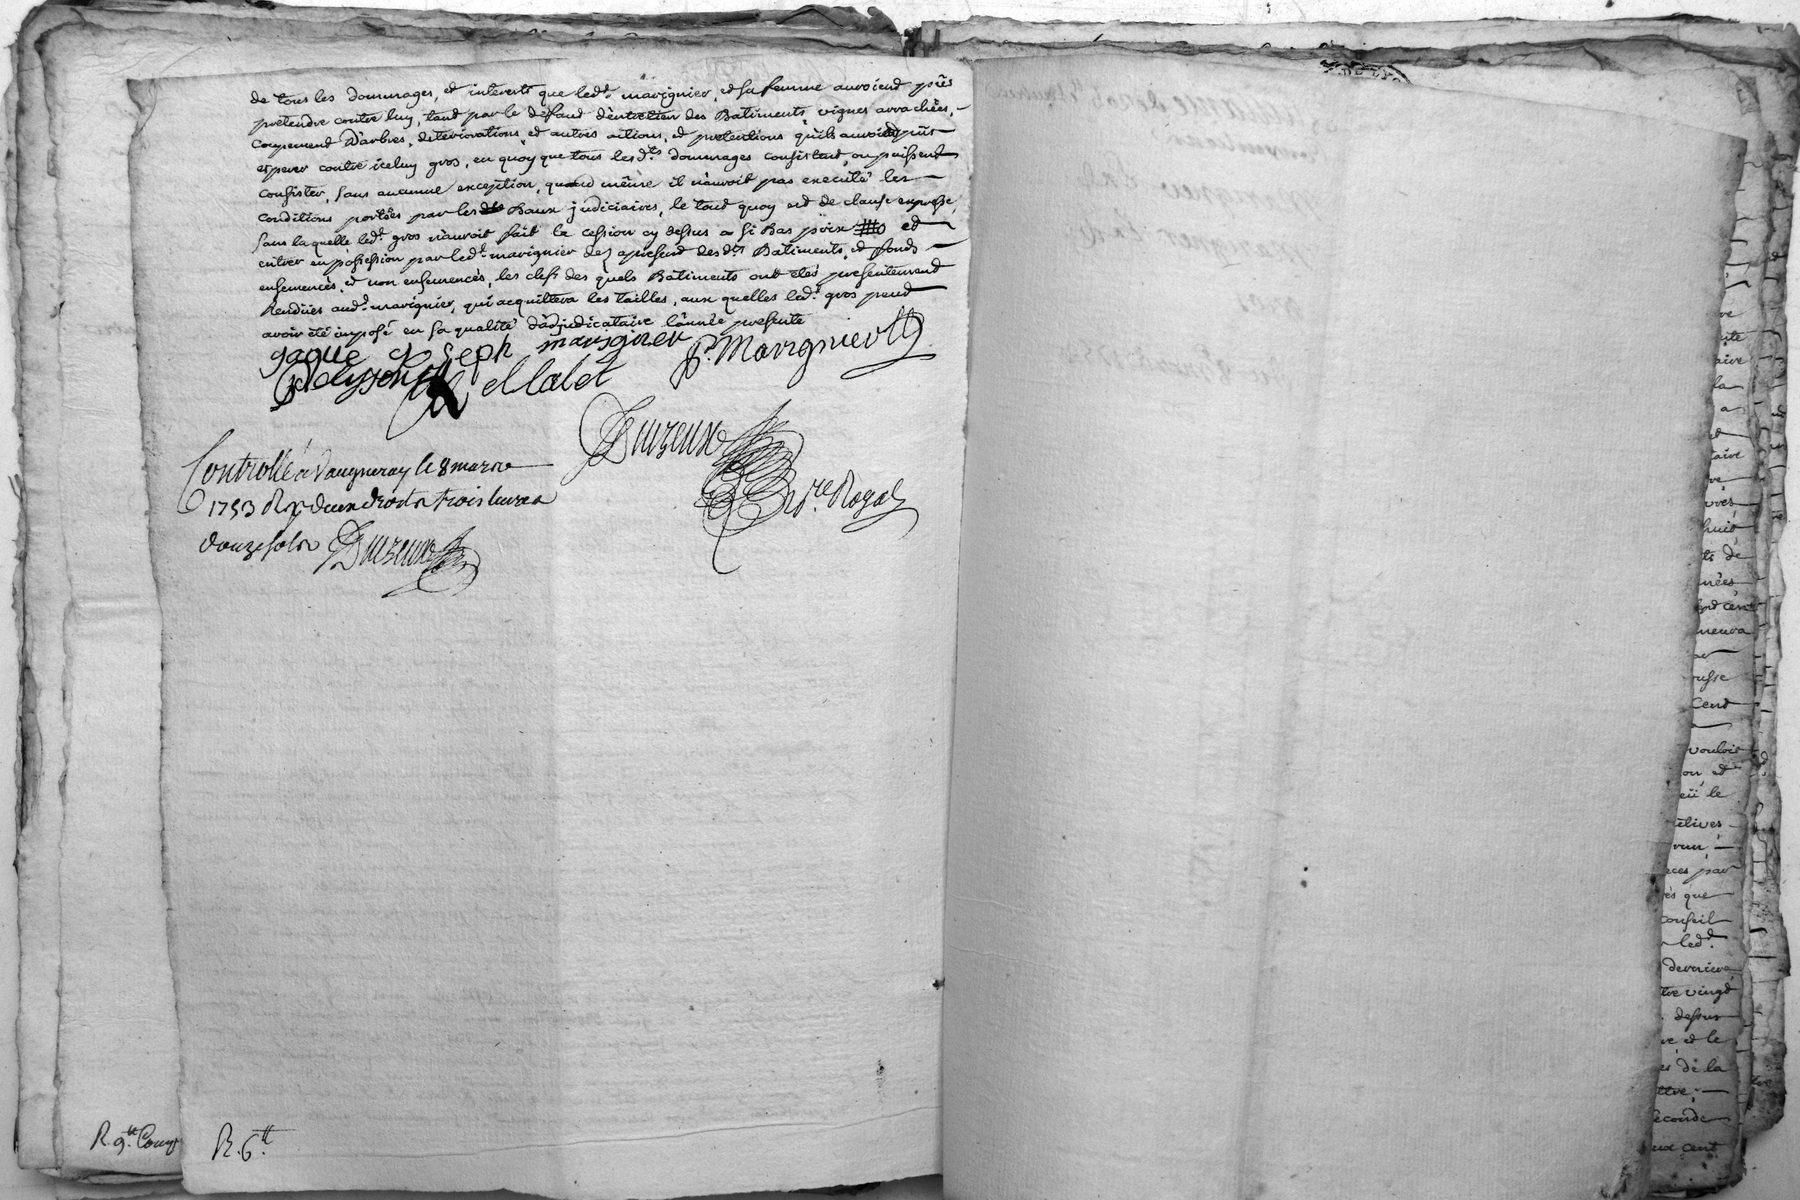 de tous les dommages, et interests que led.t marignier, et sa femme auroiend pûs
pretendre contre luy, tand par le défaud d'entretien des Batiments, vignes arrachées,
coupemend d'arbres, deteriorations, et autres actions, et pretentions qu'ils auroiend pûs
esperer contre iceluy gros, en quoy que tous lesd.ts dommages consistent, ou puissent
consister, sans aucunne exception, quand même il n'auroit pas executé les
conditions portées par les Baux judiciaires, le toud quoy est de clause expresse,
sans laquelle led.t gros n'auroit fait la cession cy dessus a si Bas prix et
entrer en possession par led.t marignier des apresend desd.ts Batiments, et fonds
ensemencés, et non ensemencés, les clefs des quels Batiments ont étés presentemend
Rendües aud.t marignier, qui acquittera les tailles, aux quelles led.t gros peud
avoir été imposé en sa qualité d'adjudicataire l'année presente
joseph marignier P. Marignier
Malet
Duzeux
Controllé a Vaugneray le 8 mars
1753 Reçu deux droits trois livres
N.re Royal
douze sols Duzeux
R. 9.tt
R. 6.tt
huit
ts de
nées
cent
vouloir
eü le
par
que
conseil
led.t
derniere
vingt
dessus
et le
de la
seconde
cent